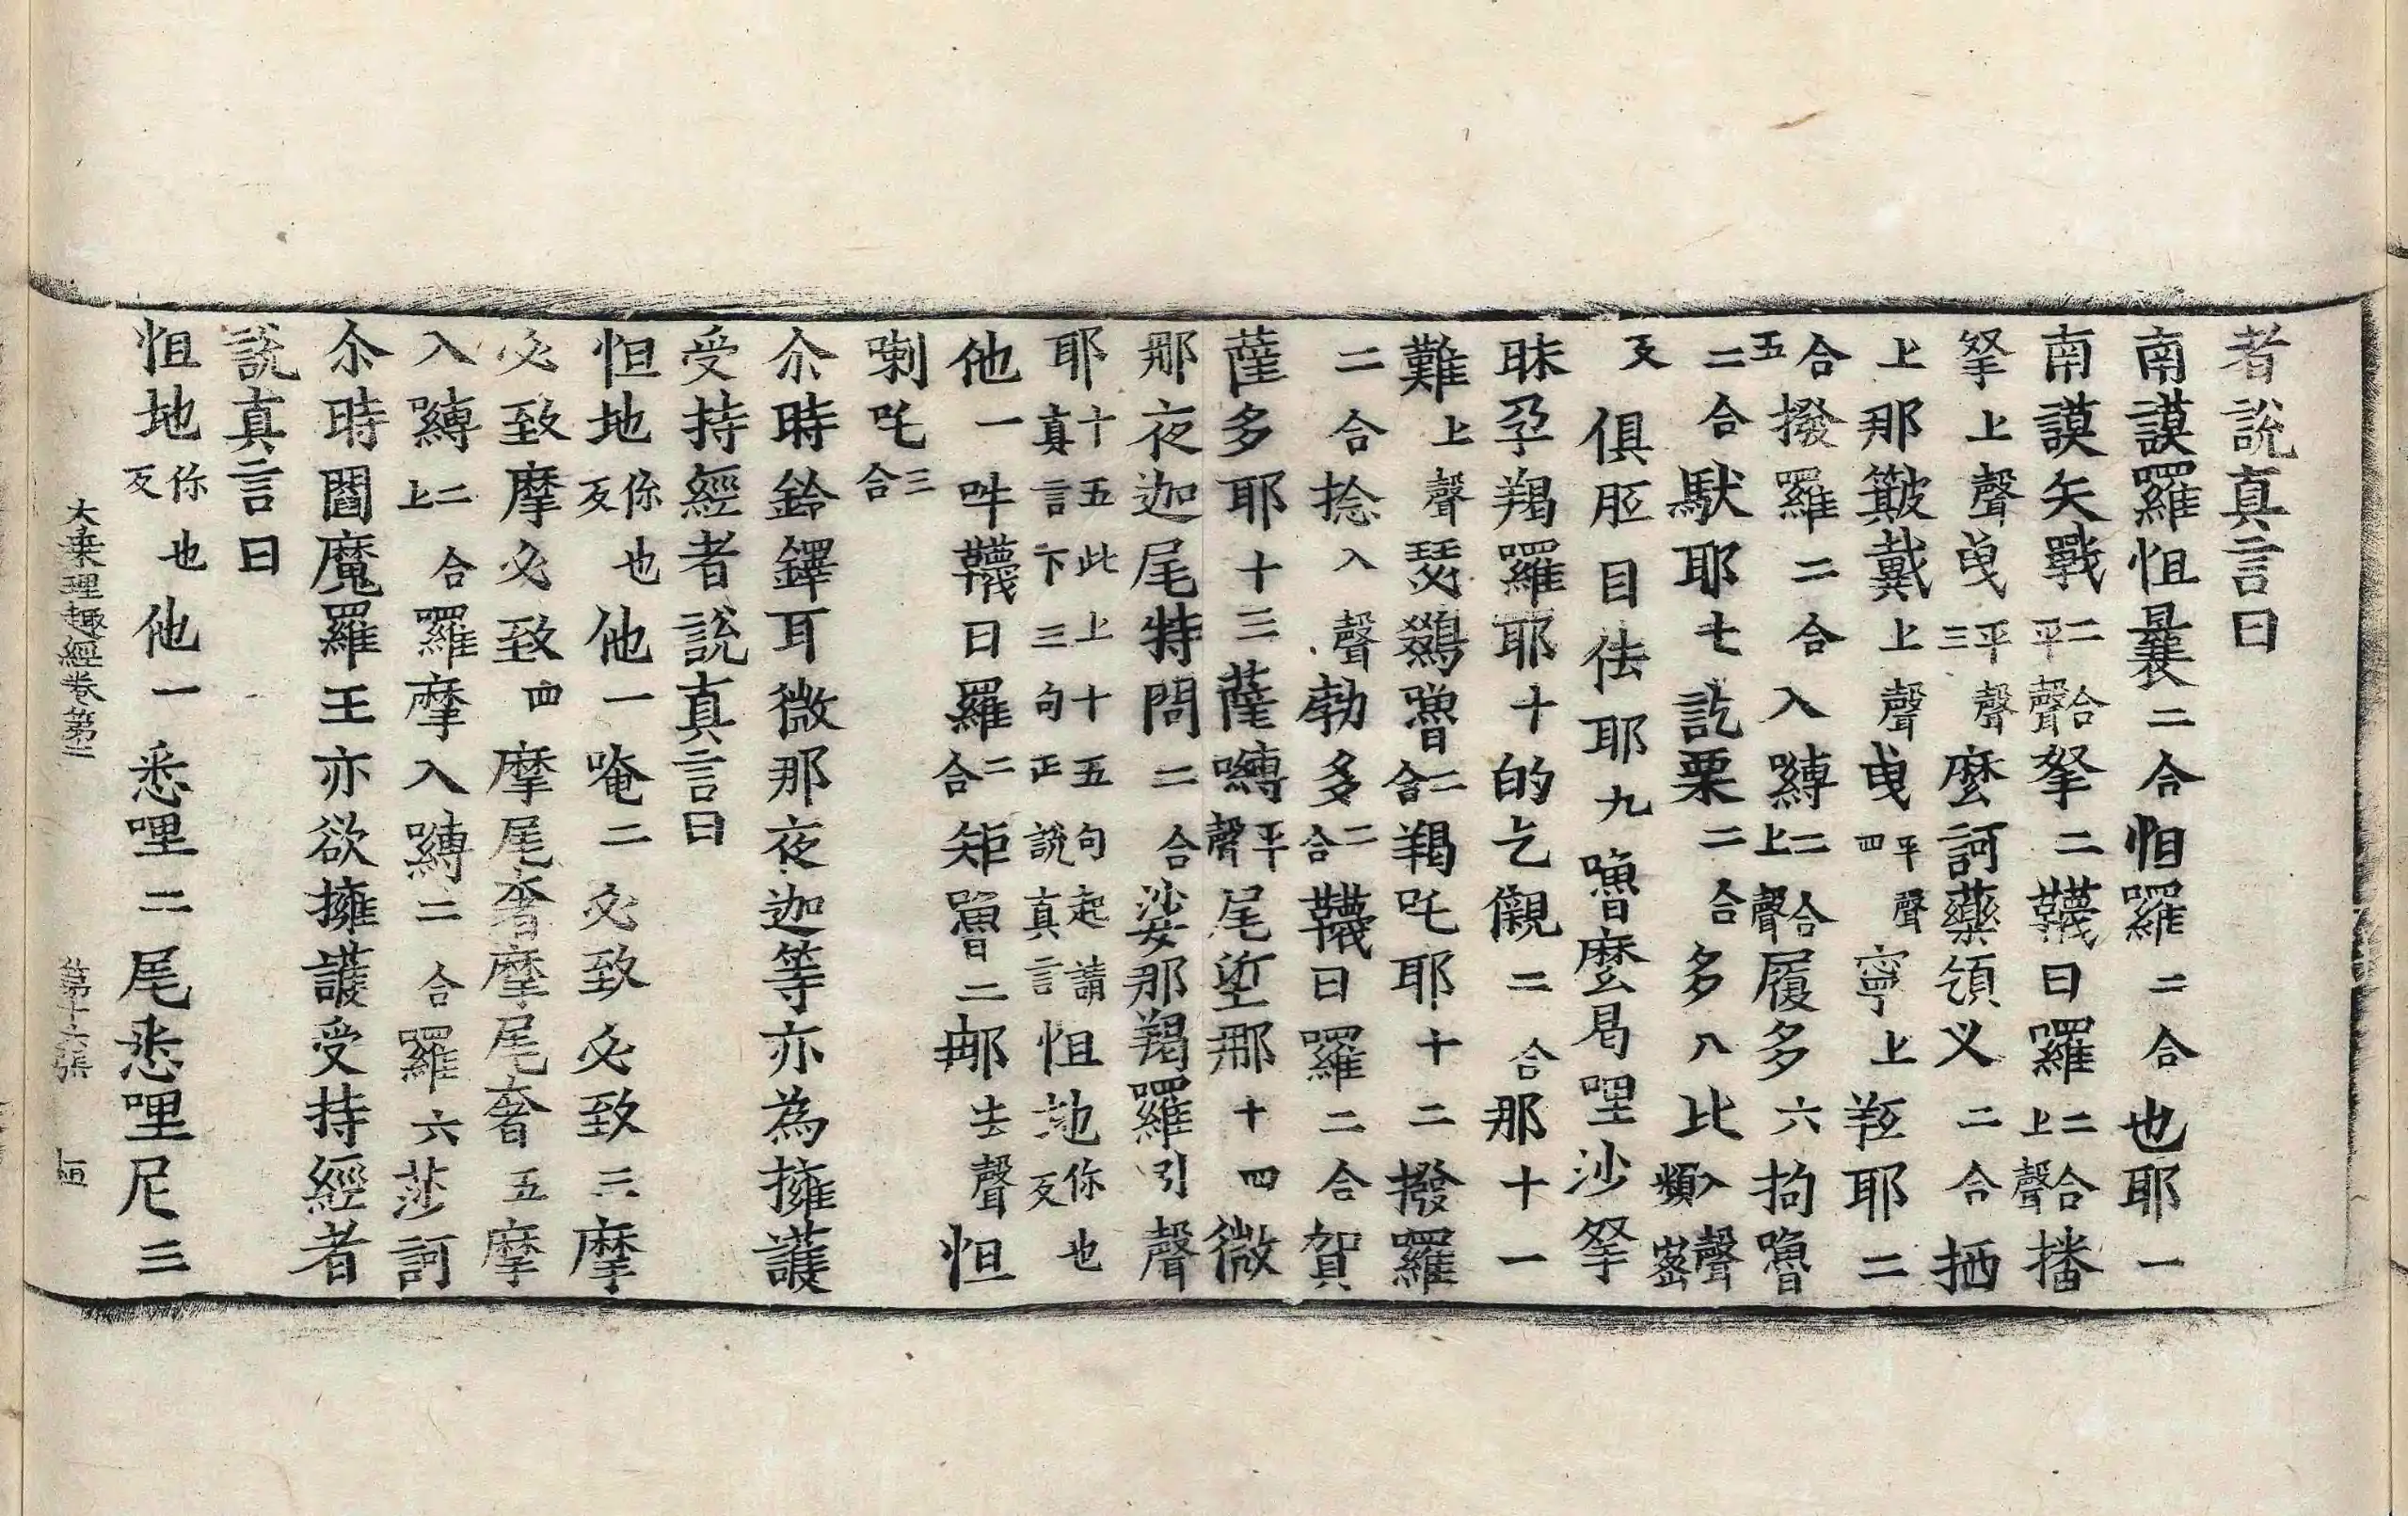 者說真言曰
南謨羅怛曩二合怛囉二合也耶一
南謨矢戰二合平聲拏二韈曰羅二合上聲播
拏上聲曳平聲三麼訶藥領义二合拪
上那簸戴上聲曳平聲四寧上羟耶二
合五撥羅二合入嚩二合上聲履多六拘嚕
二合馱耶七訖栗二合多八比入聲頻蜜
反俱胝目佉耶九嚕麼曷哩沙拏
昩孕羯囉耶十的乞儭二合那十一
難上聲瑟鷄嚕二合羯吒耶十二撥羅
二合捻入聲勃多二合韈曰羅二合賀
薩多耶十三薩嚩平聲尾坒那十四微
那夜迦尾特問二合娑那羯羅引聲
耶十五此上十五句起請真言下三句正說真言怛地你也反
他一吽韈日羅二合矩嚕二𨚗去聲怛
喇吒三合
尒時鈴鐸耳微那夜迦等亦為擁護
受持經者說真言曰
怛地你也反他一唵二必致必致三摩
必致摩必致四摩尾奢摩尾奢五摩
入嚩二合上囉摩入嚩二合羅六莎訶
尒時閻魔羅王亦欲擁護受持經者
說真言曰
怛地你也反他一悉哩二尾悉哩尼三
大乘理趣經卷第二 第十六張 恒